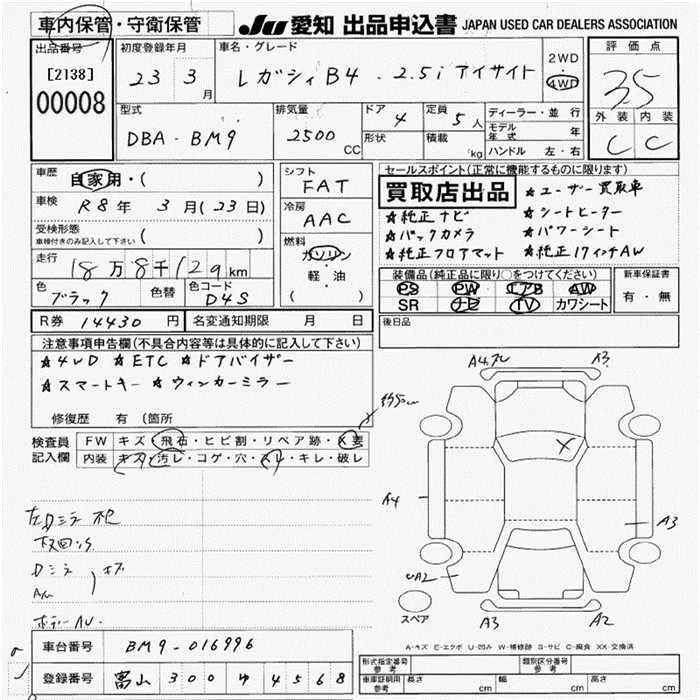 車内保管・守衛保管 JU 愛知 出品申込書 JAPAN USED CAR DEALERS ASSOCIATION
出品番号 初度登録年月 車名・グレード 評価点
[2138] 23 3月 レガシィB4 . 2.5i アイサイト 2WD 4WD 3.5
00008
型式 排気量 ドア 定員 ディーラー・並行 外装 内装
DBA - BM9 2500 CC 4 5人 モデル年式 年 C C
形状 積載 kg ハンドル 左・右
車歴 自家用・( ) シフト セールスポイント(正常に機能するものに限ります)
FAT 買取店出品 ☆ユーザー買取車
車検 R8年 3月(23日) 冷房 ☆純正ナビ ☆シートヒーター
受検形態 AAC ☆バックカメラ ☆パワーシート
車検付きのみ記入して下さい ( ) 燃料 ☆純正フロアマット ☆純正17インチAW
走行 18万8千129km ガソリン 装備品(純正品に限り○をつけてください) 新車保証書
色 ブラック 色替 色コード D4S 軽・油 PS PW エアB AW 有・無
( ) SR ナビ TV カワシート
R券 14430円 名変通知期限 月 日 後日品
注意事項申告欄(不具合内容等は具体的に記入して下さい)
☆4WD ☆ETC ☆ドアバイザー A4 A3
☆スマートキー ☆ウィンカーミラー
修復歴 有 (箇所
検査員 FW キズ・飛石・ヒビ割・リペア跡・X要
記入欄 内装 キズ・汚レ・コゲ・穴・スレ・キレ・破レ
A4 A3
A2
スペア A3 A2
A-キズ E-エクボ U-凹み W-補修跡 S-サビ C-腐食 XX-交換済
車台番号 BM9-016996 形式指定番号 参考 類別区分番号 参考
登録番号 富山 300 ゆ 4568 車庫証明用 参考 長さ cm 幅 cm 高さ cm